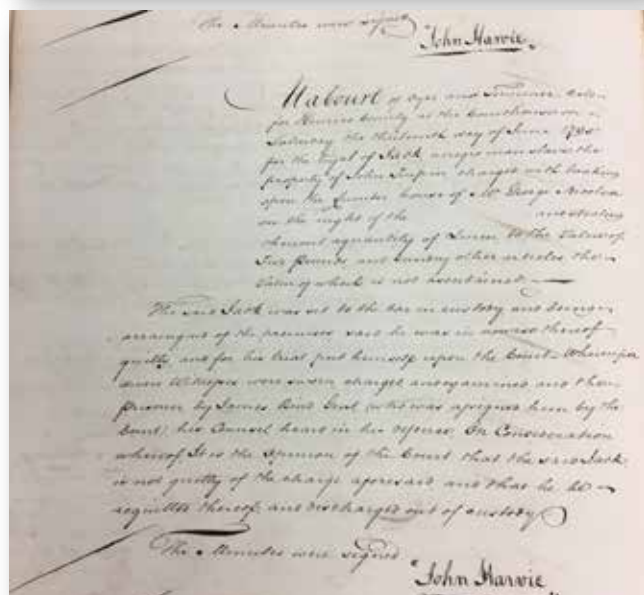 The Minutes were signed
John Harvie
At a Court of Oyer and Terminer held
for Henrico County at the Courthouse on
Saturday the thirteenth day of June 1795
for the tryal of Jack a negro man slave the
property of John Turpin charged with breaking
open the Lumber house of Mr George Nicolson
on the night of the and stealing
thereout a quantity of Linen to the Value of
Five pounds and sundry other articles the
Value of which is not ascertained.
The said Jack was set to the bar in custody and being
arraigned of the premises said he was in nowise thereof
guilty and for his trial put himself upon the Court Whereupon
Witnesses were sworn charged and examined and the
prisoner by James Rind Gent. who was assigned him by the
Court his Counsel heard in his defence On Consideration
whereof It is the opinion of the Court that the said Jack
is not guilty of the charge aforesaid and that he be
acquitted thereof and discharged out of custody
The Minutes were signed
John Harvie